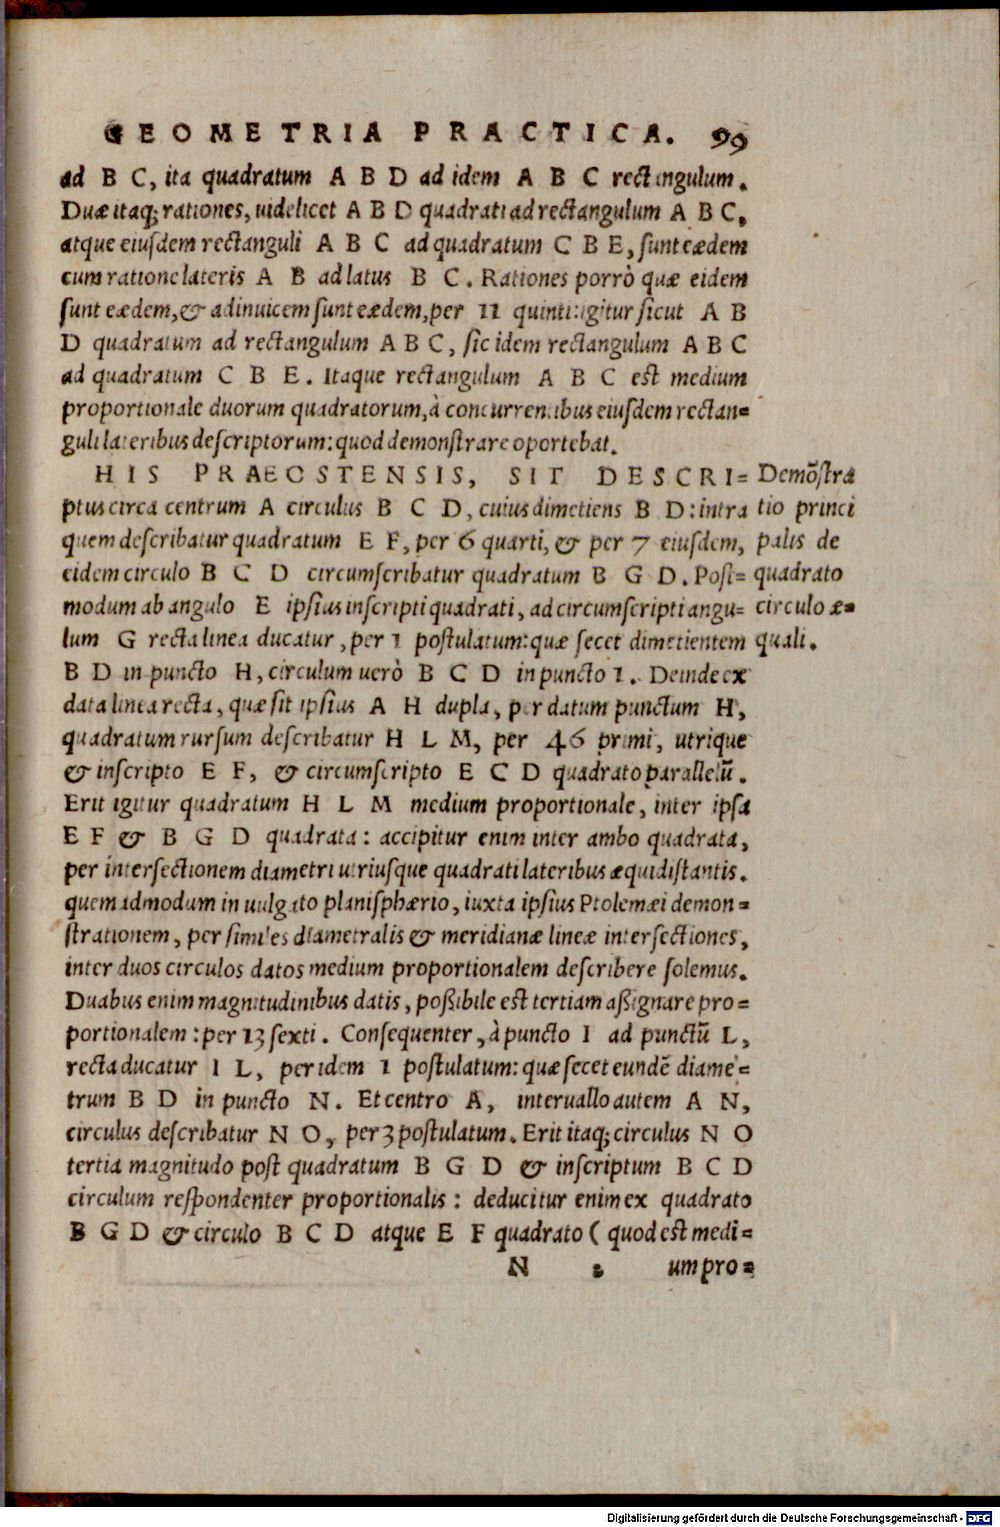 GEOMETRIA PRACTICA. 99
ad B C, ita quadratum A B D ad idem A B C rectangulum.
Duæ itaq; rationes, uidelicet A B D quadrati ad rectangulum A B C,
atque eiusdem rectanguli A B C ad quadratum C B E, sunt eædem
cum ratione lateris A B ad latus B C. Rationes porrò quæ eidem
sunt eædem, & adinuicem sunt eædem, per 11 quinti: igitur sicut A B
D quadratum ad rectangulum A B C, sic idem rectangulum A B C
ad quadratum C B E. Itaque rectangulum A B C est medium
proportionale duorum quadratorum, à concurrentibus eiusdem rectan=
guli lateribus descriptorum: quod demonstrare oportebat.
HIS PRAEOSTENSIS, SIT DESCRI=
ptus circa centrum A circulus B C D, cuius dimetiens B D: intra
quem describatur quadratum E F, per 6 quarti, & per 7 eiusdem,
eidem circulo B C D circumscribatur quadratum B G D. Post=
modum ab angulo E ipsius inscripti quadrati, ad circumscripti angu=
lum G recta linea ducatur, per 1 postulatum: quæ secet dimetientem
B D in puncto H, circulum uerò B C D in puncto I. Deinde ex
data linea recta, quæ sit ipsius A H dupla, per datum punctum H,
quadratum rursum describatur H L M, per 46 primi, utrique
& inscripto E F, & circumscripto E C D quadrato parallelū.
Erit igitur quadratum H L M medium proportionale, inter ipsa
E F & B G D quadrata: accipitur enim inter ambo quadrata,
per intersectionem diametri utriusque quadrati lateribus æquidistantis.
quemadmodum in uulgato planisphærio, iuxta ipsius Ptolemæi demon=
strationem, per similes diametralis & meridianæ lineæ intersectiones,
inter duos circulos datos medium proportionalem describere solemus.
Duabus enim magnitudinibus datis, poßibile est tertiam aßignare pro=
portionalem: per 13 sexti. Consequenter, à puncto I ad punctū L,
recta ducatur I L, per idem 1 postulatum: quæ secet eundē diame=
trum B D in puncto N. Et centro A, interuallo autem A N,
circulus describatur N O, per 3 postulatum. Erit itaq; circulus N O
tertia magnitudo post quadratum B G D & inscriptum B C D
circulum respondenter proportionalis: deducitur enim ex quadrato
B G D & circulo B C D atque E F quadrato ( quod est medi=
N 2 um pro=
Demōstra
tio princi
palis de
quadrato
circulo æ=
quali.
Digitalisierung gefördert durch die Deutsche Forschungsgemeinschaft - DFG